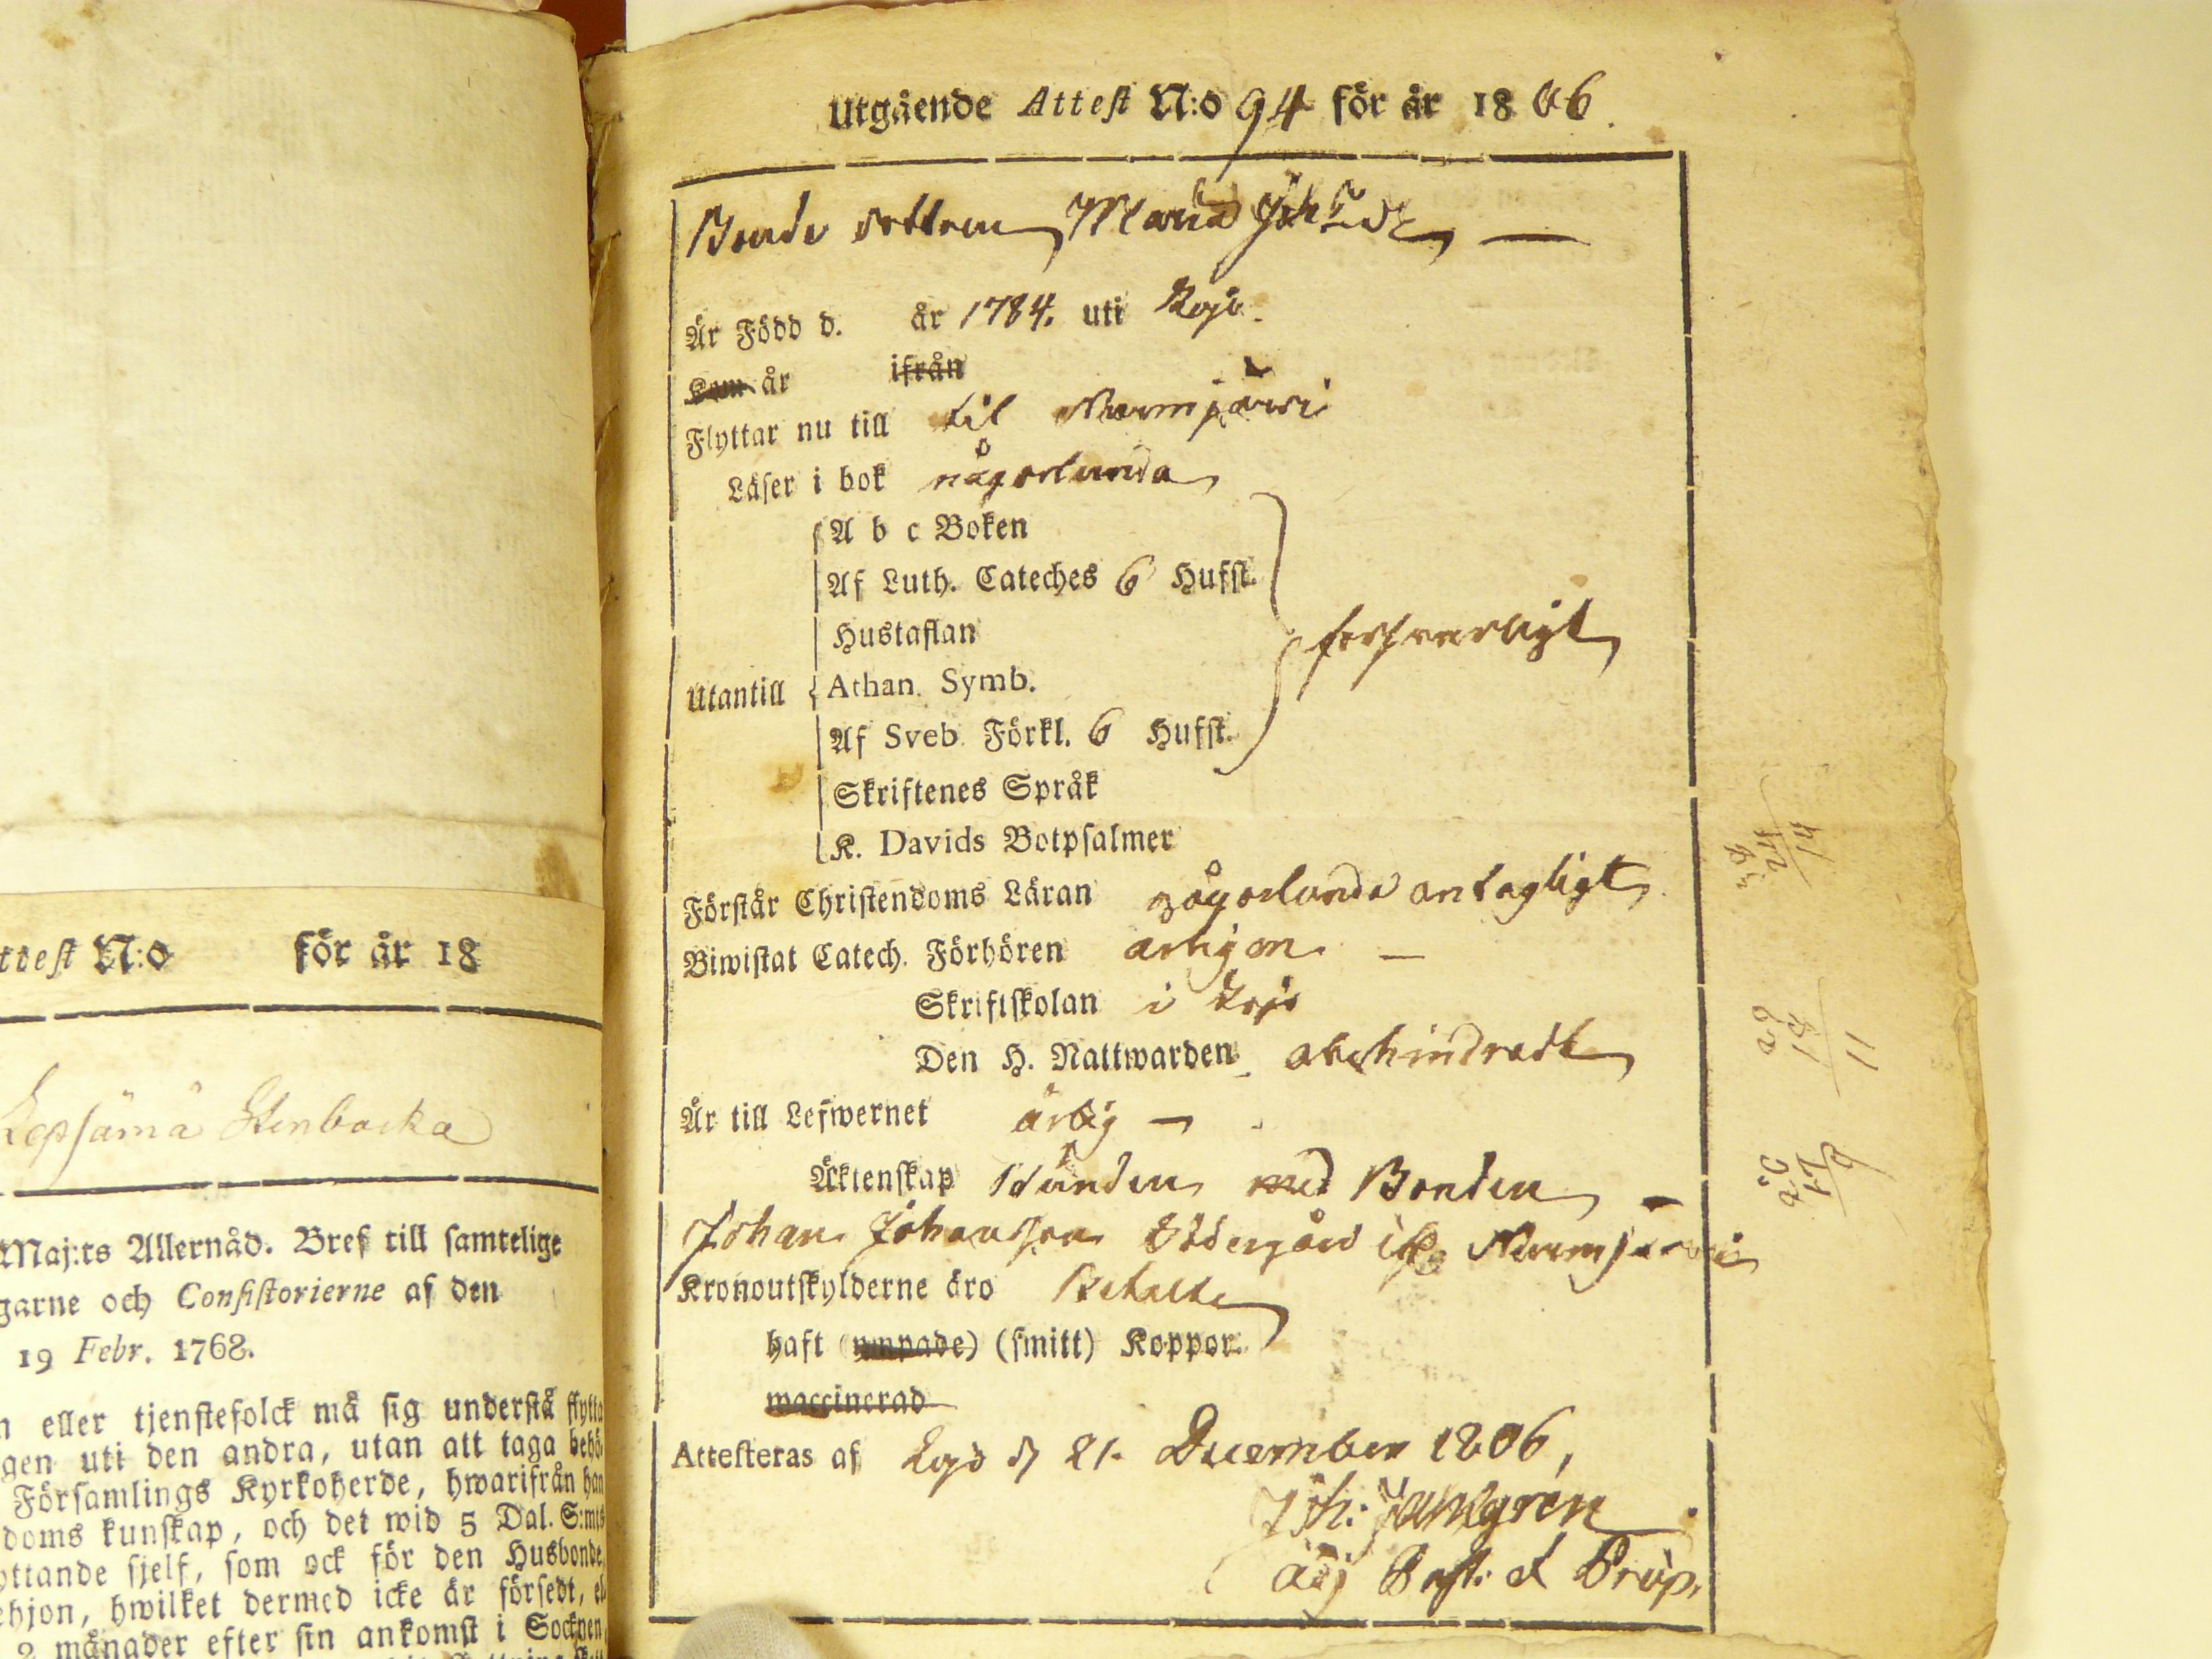 ttest N:o för år 18
Lepsämä Stenbacka
Maj:ts Allernåd. Bref till samtelige
garne och Consistorierne af den
19 Febr. 1768.
n eller tjenstefolck må sig understå flytta
gen uti den andra, utan att taga behö
Församlings Kyrkoherde, hwarifrån han
doms kunskap, och det wid 5 Dal. S:mts
yttande sjelf, som ock för den Husbonde,
ehjon, hwilket dermed icke är försedt, el
2 månader efter sin ankomst i Socknen
Utgående Attest N:o 94 för år 1806.
Bonde dottren Maria Joh:sdr
Är Född d. år 1784. uti Lojo.
Kom år ifrån
Flyttar nu till til Nurmijärvi
Läser i bok någorlunda
A b c Boken
Af Luth. Cateches 6 Hufst.
Hustaflan
försvarligt
Utantill Athan. Symb.
Af Sveb. Förkl. 6 Hufst.
Skriftenes Språk
K. Davids Botpsalmer
Förstår Christendoms Läran någorlunda antagligt
Biwistat Catech. Förhören årligen
Skriftskolan i Lojo
Den H. Nattwarden obehindradt
Är till Lefwernet ärlig
Äktenskap bunden med Bonden
Johan Johansson Nurmijärvi
Kronoutskylderne äro Betalte
haft (ympade) (smitt) Koppor.
waccinerad
Attesteras af Lojo d 21. December 1806,
Joh:
adj Past: et Præp.